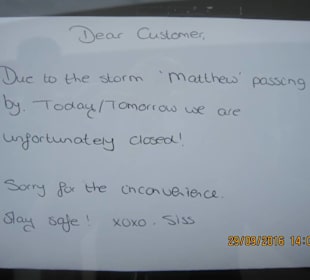 Dear Customer,
Due to the storm 'Matthew' passing
by. Today/Tomorrow we are
unfortunately closed!
Sorry for the inconvenience.
Stay safe! xoxo. Siss
29/09/2016 14:0